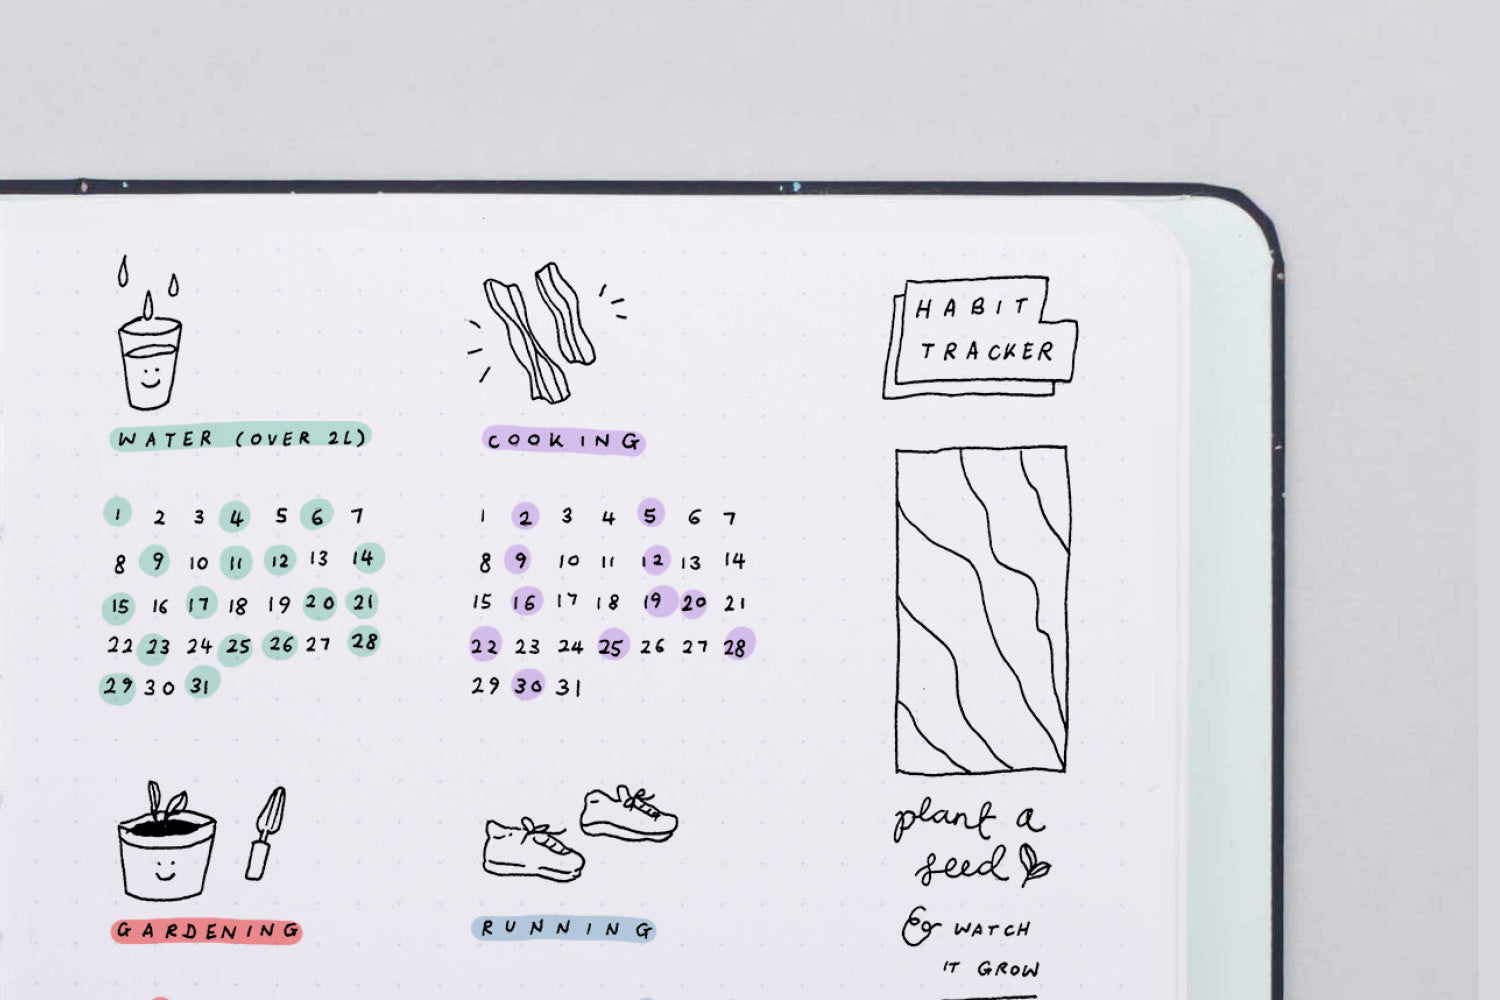 WATER (OVER 2L)
1 2 3 4 5 6 7
8 9 10 11 12 13 14
15 16 17 18 19 20 21
22 23 24 25 26 27 28
29 30 31
COOKING
1 2 3 4 5 6 7
8 9 10 11 12 13 14
15 16 17 18 19 20 21
22 23 24 25 26 27 28
29 30 31
GARDENING
RUNNING
HABIT
TRACKER
plant a
seed
& WATCH
IT GROW